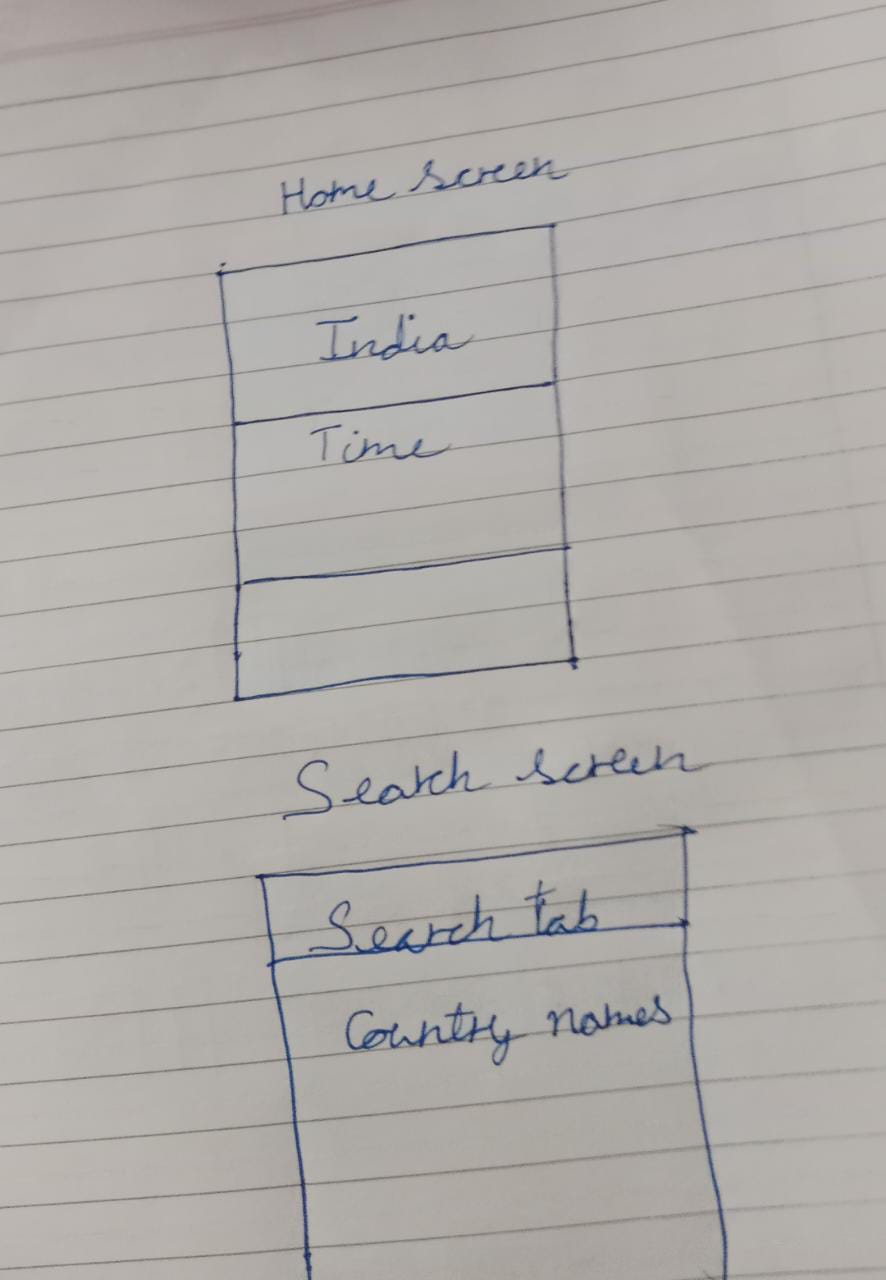 Home screen
India
Time
Search screen
Search tab
Country names